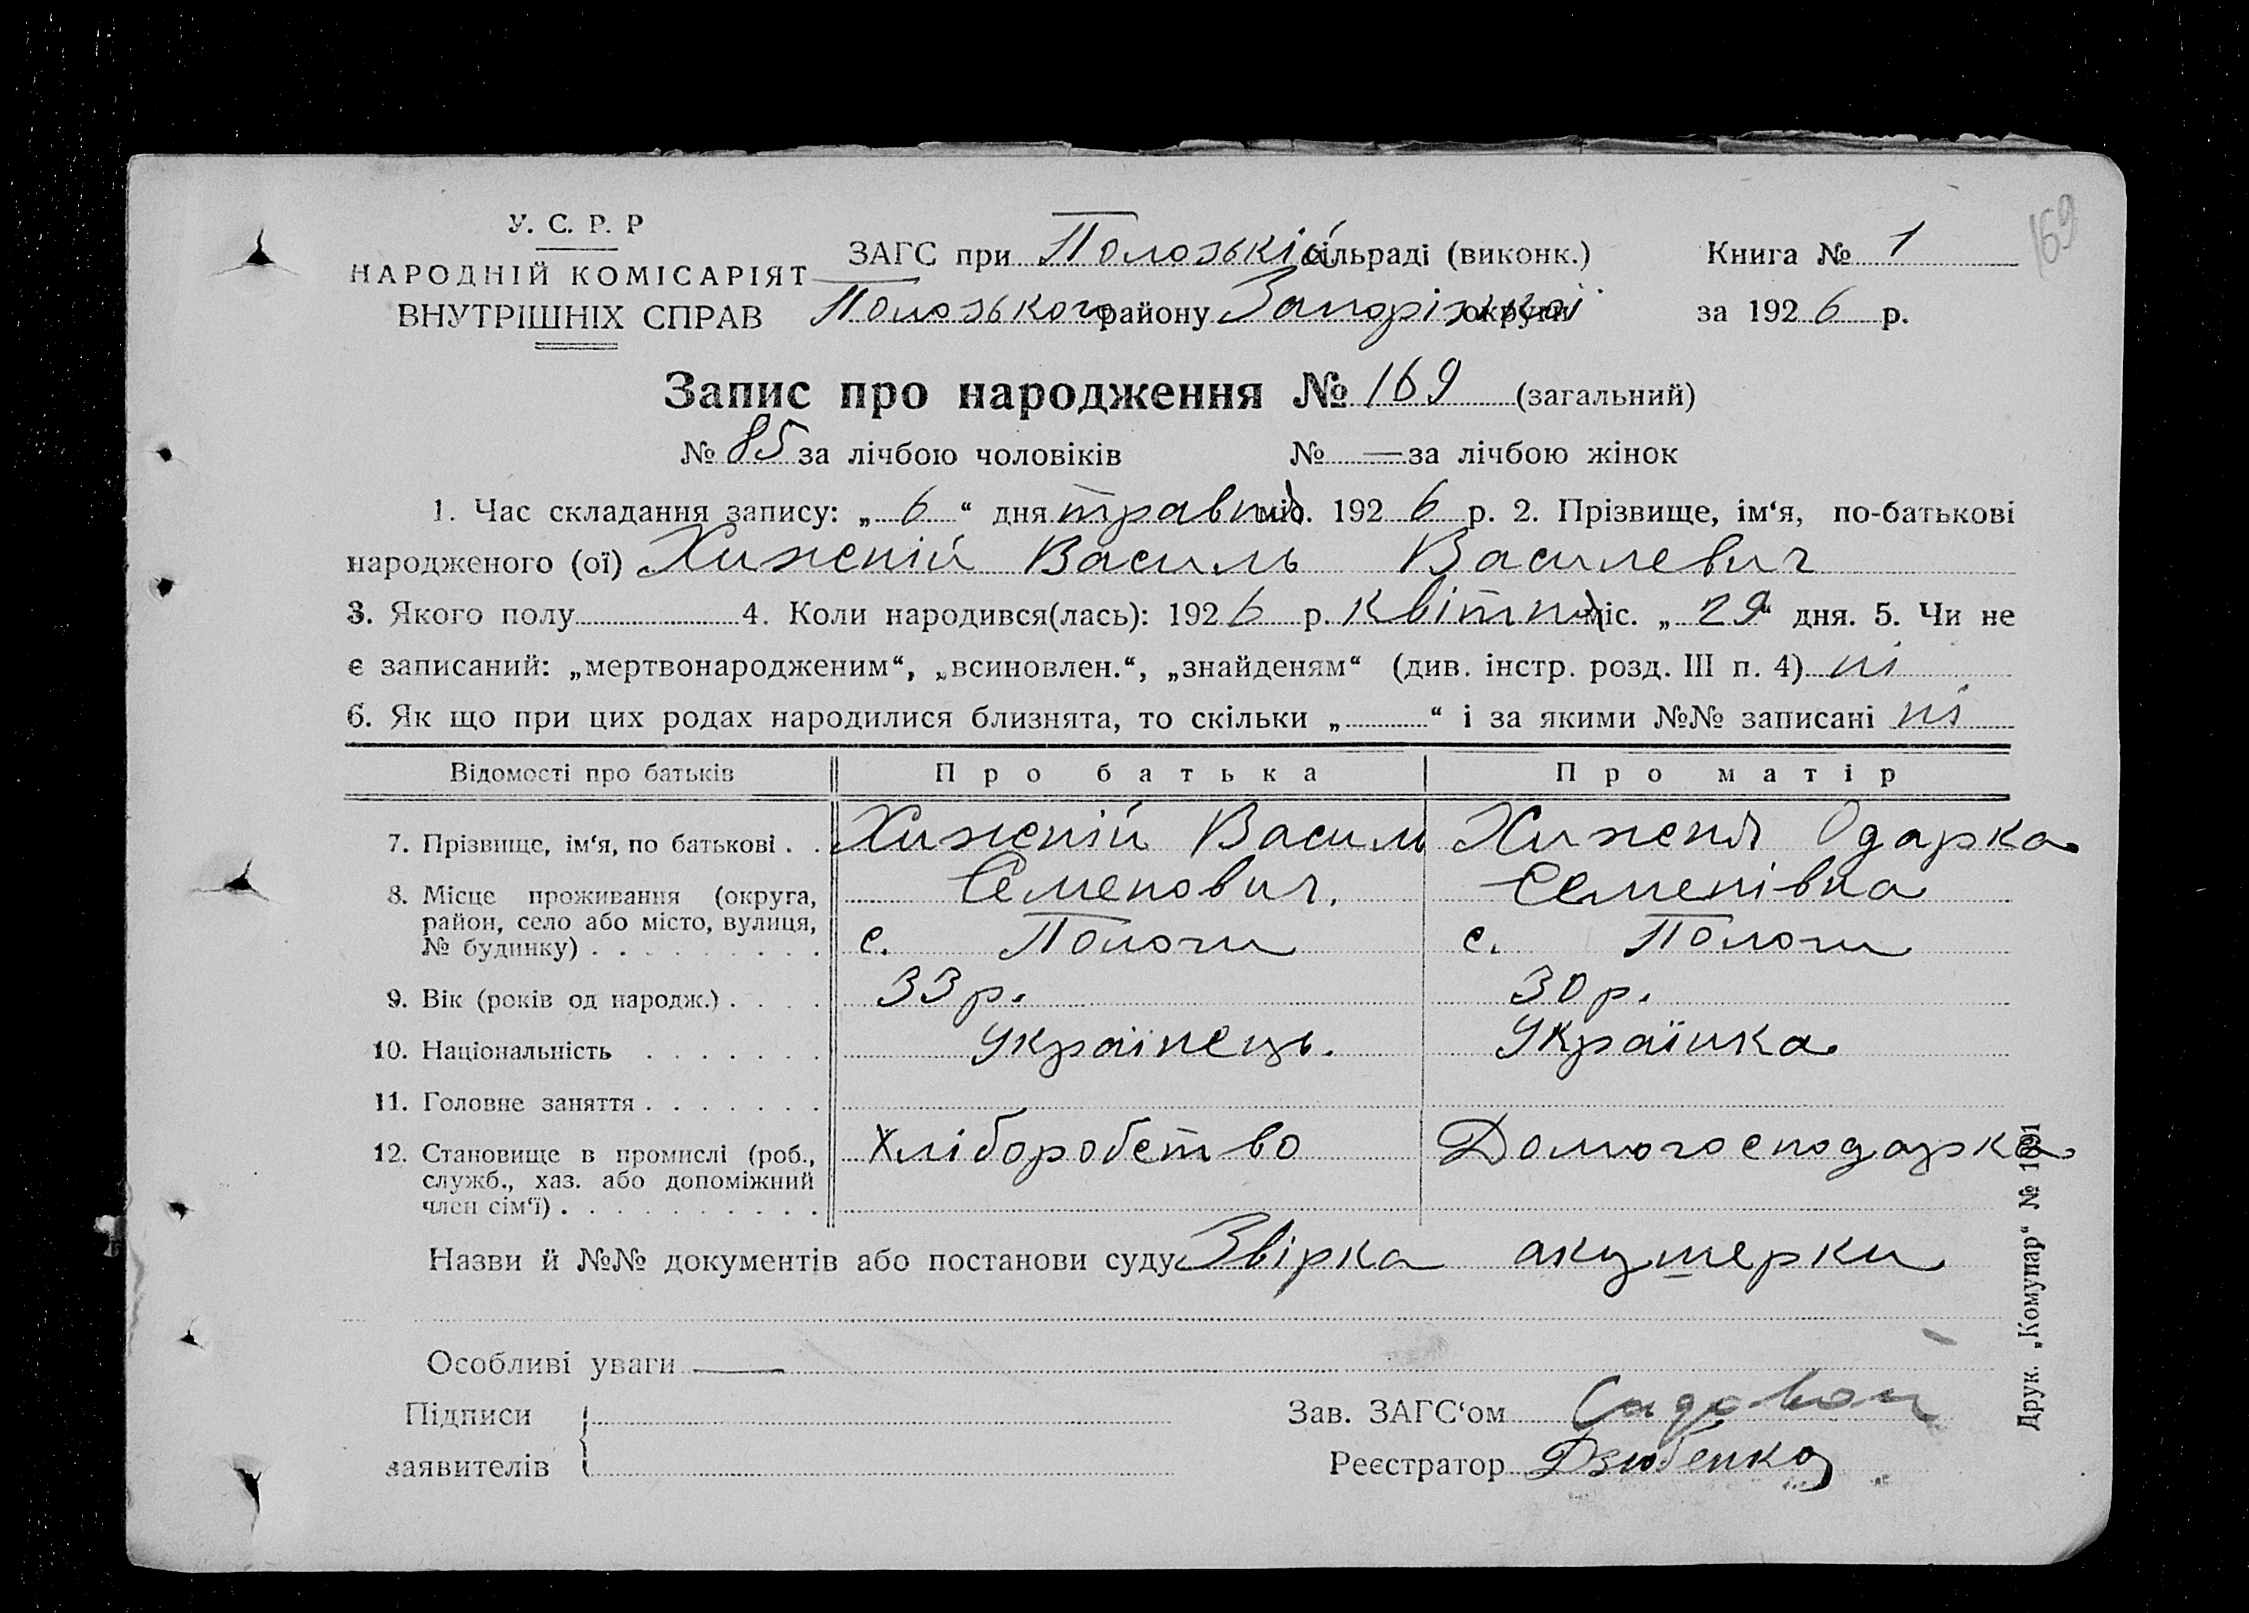 169
У. С. Р. Р
НАРОДНІЙ КОМІСАРІЯТ
ВНУТРІШНІХ СПРАВ
ЗАГС при Полозькій сільраді (виконк.)
Полозького району Запоріжкої округи
Книга № 1
за 1926 р.
Запис про народження № 169 (загальний)
№ 85 за лічбою чоловіків № — за лічбою жінок
1. Час складання запису: „ 6 “ дня травня міс. 1926 р. 2. Прізвище, ім‘я, по-батькові
народженого (ої) Хижній Василь Василевич
3. Якого полу 4. Коли народився(лась): 1926 р. Квітня міс. „ 29 “ дня. 5. Чи не
є записаний: „мертвонародженим“, „всиновлен.“, „знайденям“ (див. інстр. розд. III п. 4) ні
6. Як що при цих родах народилися близнята, то скільки „ “ і за якими №№ записані ні
Відомості про батьків Про батька Про матір
7. Прізвище, ім‘я, по батькові . . Хижній Василь Хижня Одарка
Семенович. Семенівна
8. Місце проживання (округа,
район, село або місто, вулиця,
№ будинку) . . . . . . . . . с. Пологи с. Пологи
9. Вік (років од народж.) . . . . 33 р. 30 р.
10. Національність . . . . . . . Українець. Українка
11. Головне заняття . . . . . . .
12. Становище в промислі (роб.,
служб., хаз. або допоміжний
член сім‘ї) . . . . . . . . . . Хліборобство Домогосподарка
Назви й №№ документів або постанови суду Звірка акушерки
Особливі уваги —
Підписи
заявителів
Зав. ЗАГС‘ом Садовой
Реєстратор Дзюбенко
Друк. „Комупар“ № 1